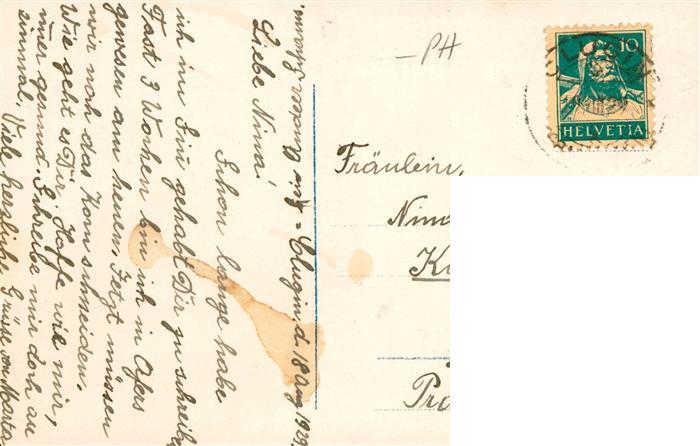 Ausser-Clugin d. 18 Aug 1929.
Liebe Nina!
Schon lange habe
ich im Sinn gehabt Dir zu schreiben
Fast 3 Wochen bin ich in Afers
gewesen am heuen. Jetzt müssen
wir noch das Korn schneiden.
Wie geht es Dir. Hoffe wie mir,
immer gesund. Schreibe mir doch au
einmal. Viele herzliche Grüsse von Marta.
–PH
10
HELVETIA
CLUGIN
Fräulein,
Nina